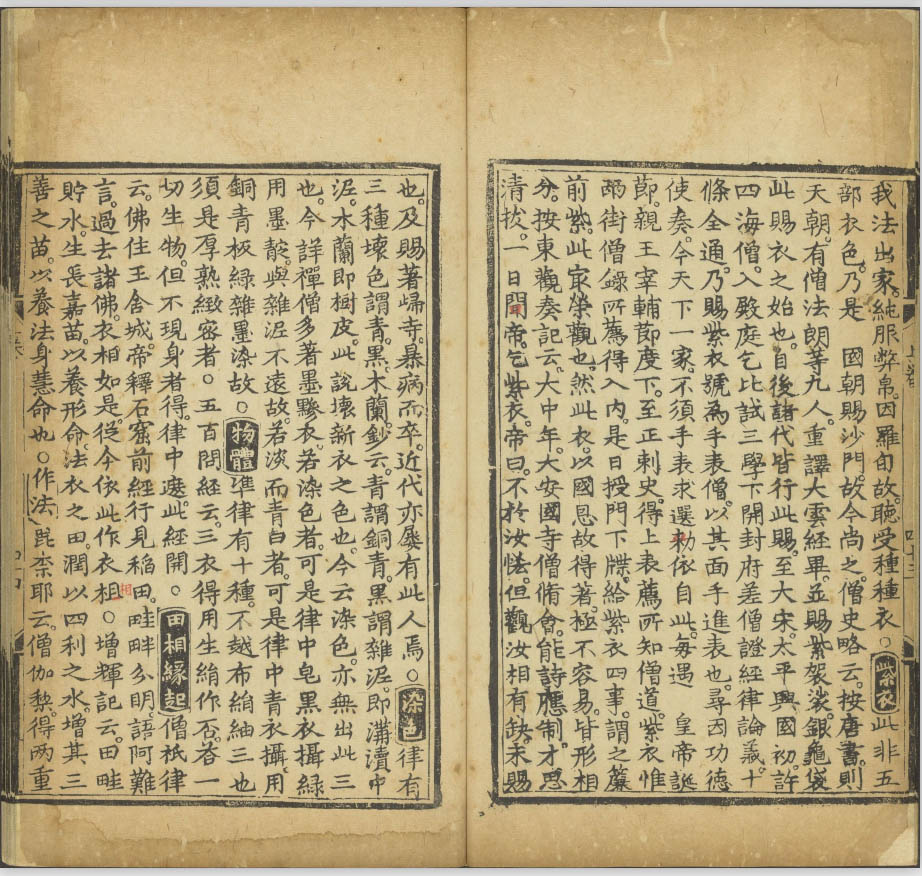 我法出家。純服弊帛。因羅旬故。聽受種種衣。○紫衣此非五
部衣色。乃是　國朝賜沙門。故今尚之。僧史略云。按唐書。則
天朝。有僧法朗等九人。重譯大雲經畢。並賜紫袈裟。銀龜袋
此賜衣之始也。自後諸代皆行此賜。至大宋。太平興國初。許
四海僧。入殿庭乞比試三學。下開封府差僧證經律論義。十
條全通。乃賜紫衣。號為手表僧。以其面手進表也。尋因功德
使奏。今天下一家。不須手表求選。勑依自此。每遇　皇帝誕
節。親王宰輔節度下。至正刺史。得上表薦所知僧道。紫衣惟
兩街僧錄所薦得入內。是日授門下牒。給紫衣四事。謂之簾
前紫。此最榮觀也。然此衣。以國恩故得著。極不容易。皆形相
分。按東觀奏記云。大中年。大安國寺僧脩會。能詩應制。才思
清拔。一日聞帝。乞紫衣。帝曰。不於汝恡。但觀汝相有缺。未賜
也。及賜著歸寺。暴病而卒。近代亦屢有此人焉。○染色律有
三種壞色。謂青。黑。木蘭。鈔云。青謂銅青。黑謂雜泥。即溝瀆中
泥。木蘭即樹皮。此說壞新衣之色也。今云染色。亦無出此三
也。今詳禪僧多著墨黲衣。若染色者。可是律中皂黑衣攝。緣
用墨靛。與雜泥不遠故。若淡而青白者。可是律中青衣攝。用
銅青板綠雜墨染故。○物體準律有十種。不越布絹紬三也
須是厚熟緻密者。○五百問經云。三衣得用生絹作否。答一
切生物。但不現身者得。律中遮。此經開。○田相緣起僧祇律
云。佛住王舍城。帝釋石窟前經行。見稻田。畦畔分明。語阿難
言。過去諸佛。衣相如是。從今依此作衣相。○增輝記云。田畦
貯水。生長嘉苗。以養形命。法衣之田。潤以四利之水。增其三
善之苗。以養法身慧命也。○作法毘柰耶云。僧伽黎。得兩重
上卷
四三
四四